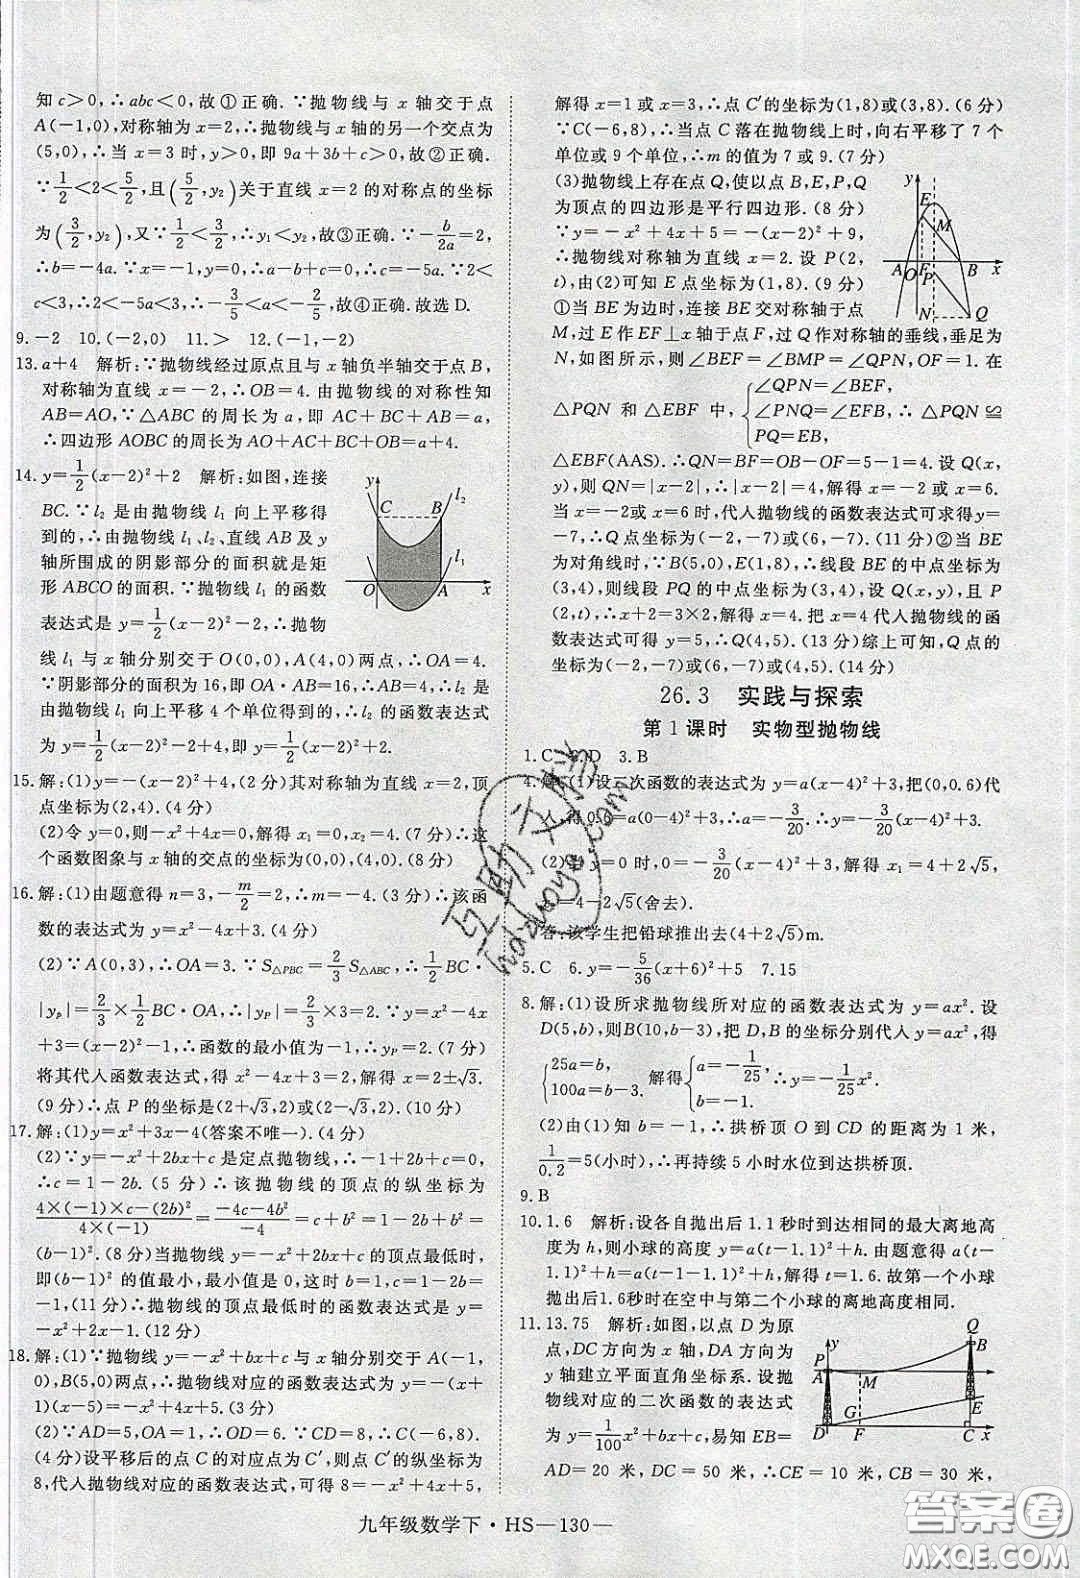 知c>0,∴abc<0,故①正确.∵抛物线与 x 轴交于点
A(-1,0),对称轴为x=2,∴抛物线与x轴的另一个交点为
(5,0),∴当 x=3时,y>0,即9a+3b+c>0,故②正确.
∵1/2<2<5/2,且(5/2,y₂)关于直线 x=2 的对称点的坐标
为(3/2,y₂),又∵1/2<3/2,∴y₁<y₂,故③正确.∵-b/2a=2,
∴b=-4a.∵x=-1,y=0,∴a-b+c=0,∴c=-5a.∵2<
c<3,∴2<-5a<3,∴-3/5<a<-2/5,故④正确.故选D.
9.-2 10.(-2,0) 11.> 12.(-1,-2)
13.a+4 解析:∵抛物线经过原点且与x轴负半轴交于点B,
对称轴为直线 x=-2,∴OB=4.由抛物线的对称性知
AB=AO,∵△ABC 的周长为a,即 AC+BC+AB=a,
∴四边形AOBC的周长为AO+AC+BC+OB=a+4.
14.y=1/2(x-2)²+2 解析:如图,连接
BC.∵l₂是由抛物线l₁向上平移得
到的,∴由抛物线l₁、l₂、直线AB及y
轴所围成的阴影部分的面积就是矩
形 ABCO 的面积.∵抛物线l₁的函数
表达式是 y=1/2(x-2)²-2,∴抛物
y C B l₂ l₁ O A x
线l₁与x轴分别交于O(0,0),A(4,0)两点,∴OA=4.
∵阴影部分的面积为16,即OA·AB=16,∴AB=4,∴l₂是
由抛物线l₁向上平移4个单位得到的,∴l₂的函数表达式
为 y=1/2(x-2)²-2+4=1/2(x-2)²+2.
15.解:(1)y=-(x-2)²+4,(2分)其对称轴为直线x=2,顶
点坐标为(2,4).(4分)
(2)令y=0,则-x²+4x=0,解得x₁=0,x₂=4.(7分)∴这
个函数图象与x轴的交点的坐标为(0,0),(4,0).(8分)
16.解:(1)由题意得n=3,-m/2=2,∴m=-4.(3分)∴该函
数的表达式为 y=x²-4x+3.(4分)
(2)∵A(0,3),∴OA=3.∵S△PBC=2/3S△ABC,∴1/2BC·
|yP|=2/3×1/2BC·OA,∴|yP|=2/3×3=2.∵y=x²-4x
+3=(x-2)²-1,∴函数的最小值为-1,∴yP=2.(7分)
将其代入函数表达式,得 x²-4x+3=2,解得x=2±√3.
(9分)∴点P的坐标是(2+√3,2)或(2-√3,2).(10分)
17.解:(1)y=x²+3x-4(答案不唯一).(4分)
(2)∵y=-x²+2bx+c是定点抛物线,∴-1+2b+c=0,
∴c=1-2b.(7分)∵该抛物线的顶点的纵坐标为
4×(-1)×c-(2b)²/4×(-1)=-4c-4b²/-4=c+b²=b²+1-2b=
(b-1)².(8分)当抛物线y=-x²+2bx+c的顶点最低时,
即(b-1)²的值最小,最小值是0,这时b=1,c=1-2b=
-1,(11分)∴抛物线的顶点最低时的函数表达式是 y=
-x²+2x-1.(12分)
18.解:(1)∵抛物线y=-x²+bx+c与x轴分别交于A(-1,
0),B(5,0)两点,∴抛物线对应的函数表达式为y=-(x+
1)(x-5)=-x²+4x+5.(3分)
(2)∵AD=5,OA=1,∴OD=6.∵CD=8,∴C(-6,8).
(4分)设平移后的点C的对应点为C′,则点C′的纵坐标为
8,代入抛物线对应的函数表达式,可得8=-x²+4x+5,
解得 x=1或x=3,∴点C′的坐标为(1,8)或(3,8).(6分)
∵C(-6,8),∴当点C落在抛物线上时,向右平移了7个
单位或9个单位,∴m的值为7或9.(7分)
(3)抛物线上存在点Q,使以点B,E,P,Q
为顶点的四边形是平行四边形.(8分)
∵y=-x²+4x+5=-(x-2)²+9,
∴抛物线对称轴为直线x=2.设P(2,
t),由(2)可知E点坐标为(1,8).(9分)
y E M A O F B x P N Q
①当BE为边时,连接BE交对称轴于点
M,过E作EF⊥x轴于点F,过Q作对称轴的垂线,垂足为
N,如图所示,则∠BEF=∠BMP=∠QPN,OF=1.在
△PQN 和△EBF 中,{∠QPN=∠BEF,
∠PNQ=∠EFB,∴△PQN≌
PQ=EB,
△EBF(AAS).∴QN=BF=OB-OF=5-1=4.设Q(x,
y),则 QN=|x-2|,∴|x-2|=4,解得 x=-2或x=6.
当x=-2或x=6时,代入抛物线的函数表达式可求得y=
-7,∴Q(-2,-7)或(6,-7).(11分)②当 BE
为对角线时,∵B(5,0),E(1,8),∴线段BE的中点坐标为
(3,4),则线段PQ的中点坐标为(3,4),设Q(x,y),且P
(2,t),∴x+2=3×2,解得x=4.把x=4代入抛物线的函
数表达式可得y=5,∴Q(4,5).(13分)综上可知,Q点的
坐标为(-2,-7)或(6,-7)或(4,5).(14分)
26.3 实践与探索
第1课时 实物型抛物线
1.C 2.D 3.B
4.解:(1)设二次函数的表达式为y=a(x-4)²+3,把(0,0.6)代
入,得0.6=a(0-4)²+3,∴a=-3/20,∴y=-3/20(x-4)²+3.
(2)当y=0时,0=-3/20(x-4)²+3,解得x₁=4+2√5,
x₂=4-2√5(舍去).
答:该学生把铅球推出去(4+2√5)m.
5.C 6.y=-5/36(x+6)²+5 7.15
8.解:(1)设所求抛物线所对应的函数表达式为 y=ax².设
D(5,b),则B(10,b-3),把 D,B的坐标分别代入y=ax²,得
{25a=b,100a=b-3.解得{a=-1/25,b=-1.∴y=-1/25x².
(2)由(1)知 b=-1,∴拱桥顶 O 到 CD 的距离为 1 米,
1/0.2=5(小时),∴再持续5小时水位到达拱桥顶.
9.B
10.1.6 解析:设各自抛出后1.1秒时到达相同的最大离地高
度为h,则小球的高度y=a(t-1.1)²+h.由题意得a(t-
1.1)²+h=a(t-1-1.1)²+h,解得t=1.6.故第一个小球
抛出后1.6秒时在空中与第二个小球的离地高度相同.
11.13.75 解析:如图,以点D为原
点,DC方向为x轴,DA方向为
y轴建立平面直角坐标系.设抛
物线对应的二次函数的表达式
为y=1/100x²+bx+c,易知EB=
y Q P B A M E G D F C x
AD=20 米,DC=50 米,∴CE=10 米,CB=30 米,
九年级数学下·HS—130—
互助文档
hdzuoye.com
答案圈
MXQE.COM